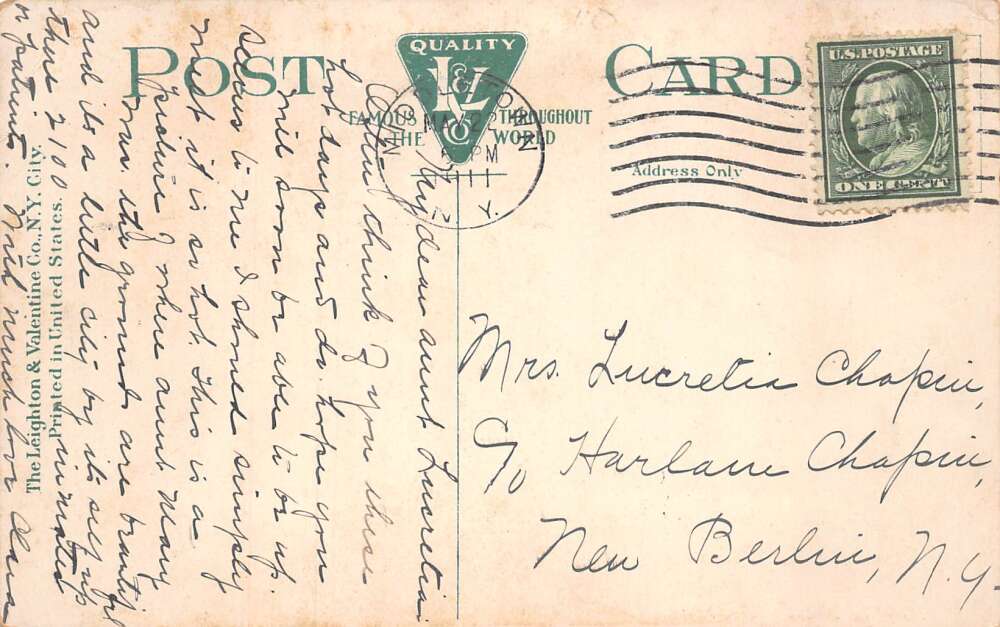 POST CARD
QUALITY
L & V Co
FAMOUS THROUGHOUT
THE WORLD
U.S. POSTAGE
ONE CENT
Address Only
PM
11
N. Y.
My dear aunt Lucretia:
Often think of you these
hot days and do hope you
will soon be able to be up.
Seems to me I should simply
melt it is so hot. This is a
picture of where aunt Mary
was. the grounds are beautiful
and its a little city by its self up
there 2100 inmates
or patients. With much love
Mrs. Lucretia Chapin,
c/o Harlan Chapin,
New Berlin, N.Y.
The Leighton & Valentine Co., N.Y. City.
Printed in United States.